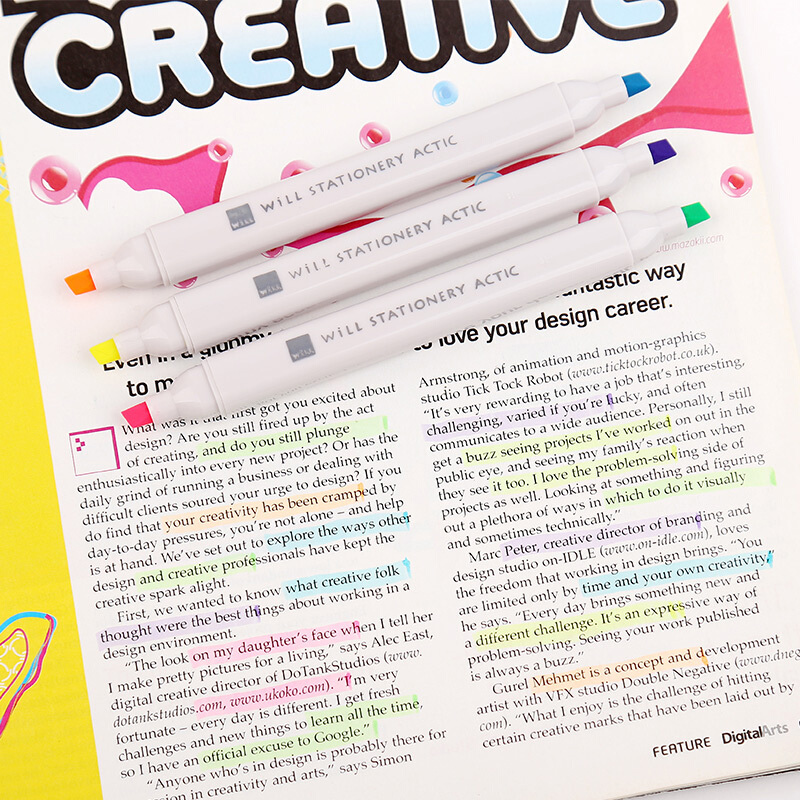 CREATIVE
WiLL STATIONERY ACTIC
WiLL
WiLL STATIONERY ACTIC
WiLL
WiLL STATIONERY ACTIC
WiLL
.mazakii.com
Even in a
to m
fantastic way
to love your design career.
What was it that first got you excited about
design? Are you still fired up by the act
of creating, and do you still plunge
enthusiastically into every new project? Or has the
daily grind of running a business or dealing with
difficult clients soured your urge to design? If you
do find that your creativity has been cramped by
day-to-day pressures, you're not alone – and help
is at hand. We've set out to explore the ways other
design and creative professionals have kept the
creative spark alight.
First, we wanted to know what creative folk
thought were the best things about working in a
design environment.
"The look on my daughter's face when I tell her
I make pretty pictures for a living," says Alec East,
digital creative director of DoTankStudios (www.
dotankstudios.com, www.ukoko.com). "I'm very
fortunate – every day is different. I get fresh
challenges and new things to learn all the time,
so I have an official excuse to Google."
"Anyone who's in design is probably there for
in creativity and arts," says Simon
Armstrong, of animation and motion-graphics
studio Tick Tock Robot (www.ticktockrobot.co.uk).
"It's very rewarding to have a job that's interesting,
challenging, varied if you're lucky, and often
communicates to a wide audience. Personally, I still
get a buzz seeing projects I've worked on out in the
public eye, and seeing my family's reaction when
they see it too. I love the problem-solving side of
projects as well. Looking at something and figuring
out a plethora of ways in which to do it visually
and sometimes technically."
Marc Peter, creative director of branding and
design studio on-IDLE (www.on-idle.com), loves
the freedom that working in design brings. "You
are limited only by time and your own creativity,"
he says. "Every day brings something new and
a different challenge. It's an expressive way of
problem-solving. Seeing your work published
is always a buzz."
Gurel Mehmet is a concept and development
artist with VFX studio Double Negative (www.dneg
com). "What I enjoy is the challenge of hitting
certain creative marks that have been laid out by
FEATURE DigitalArts